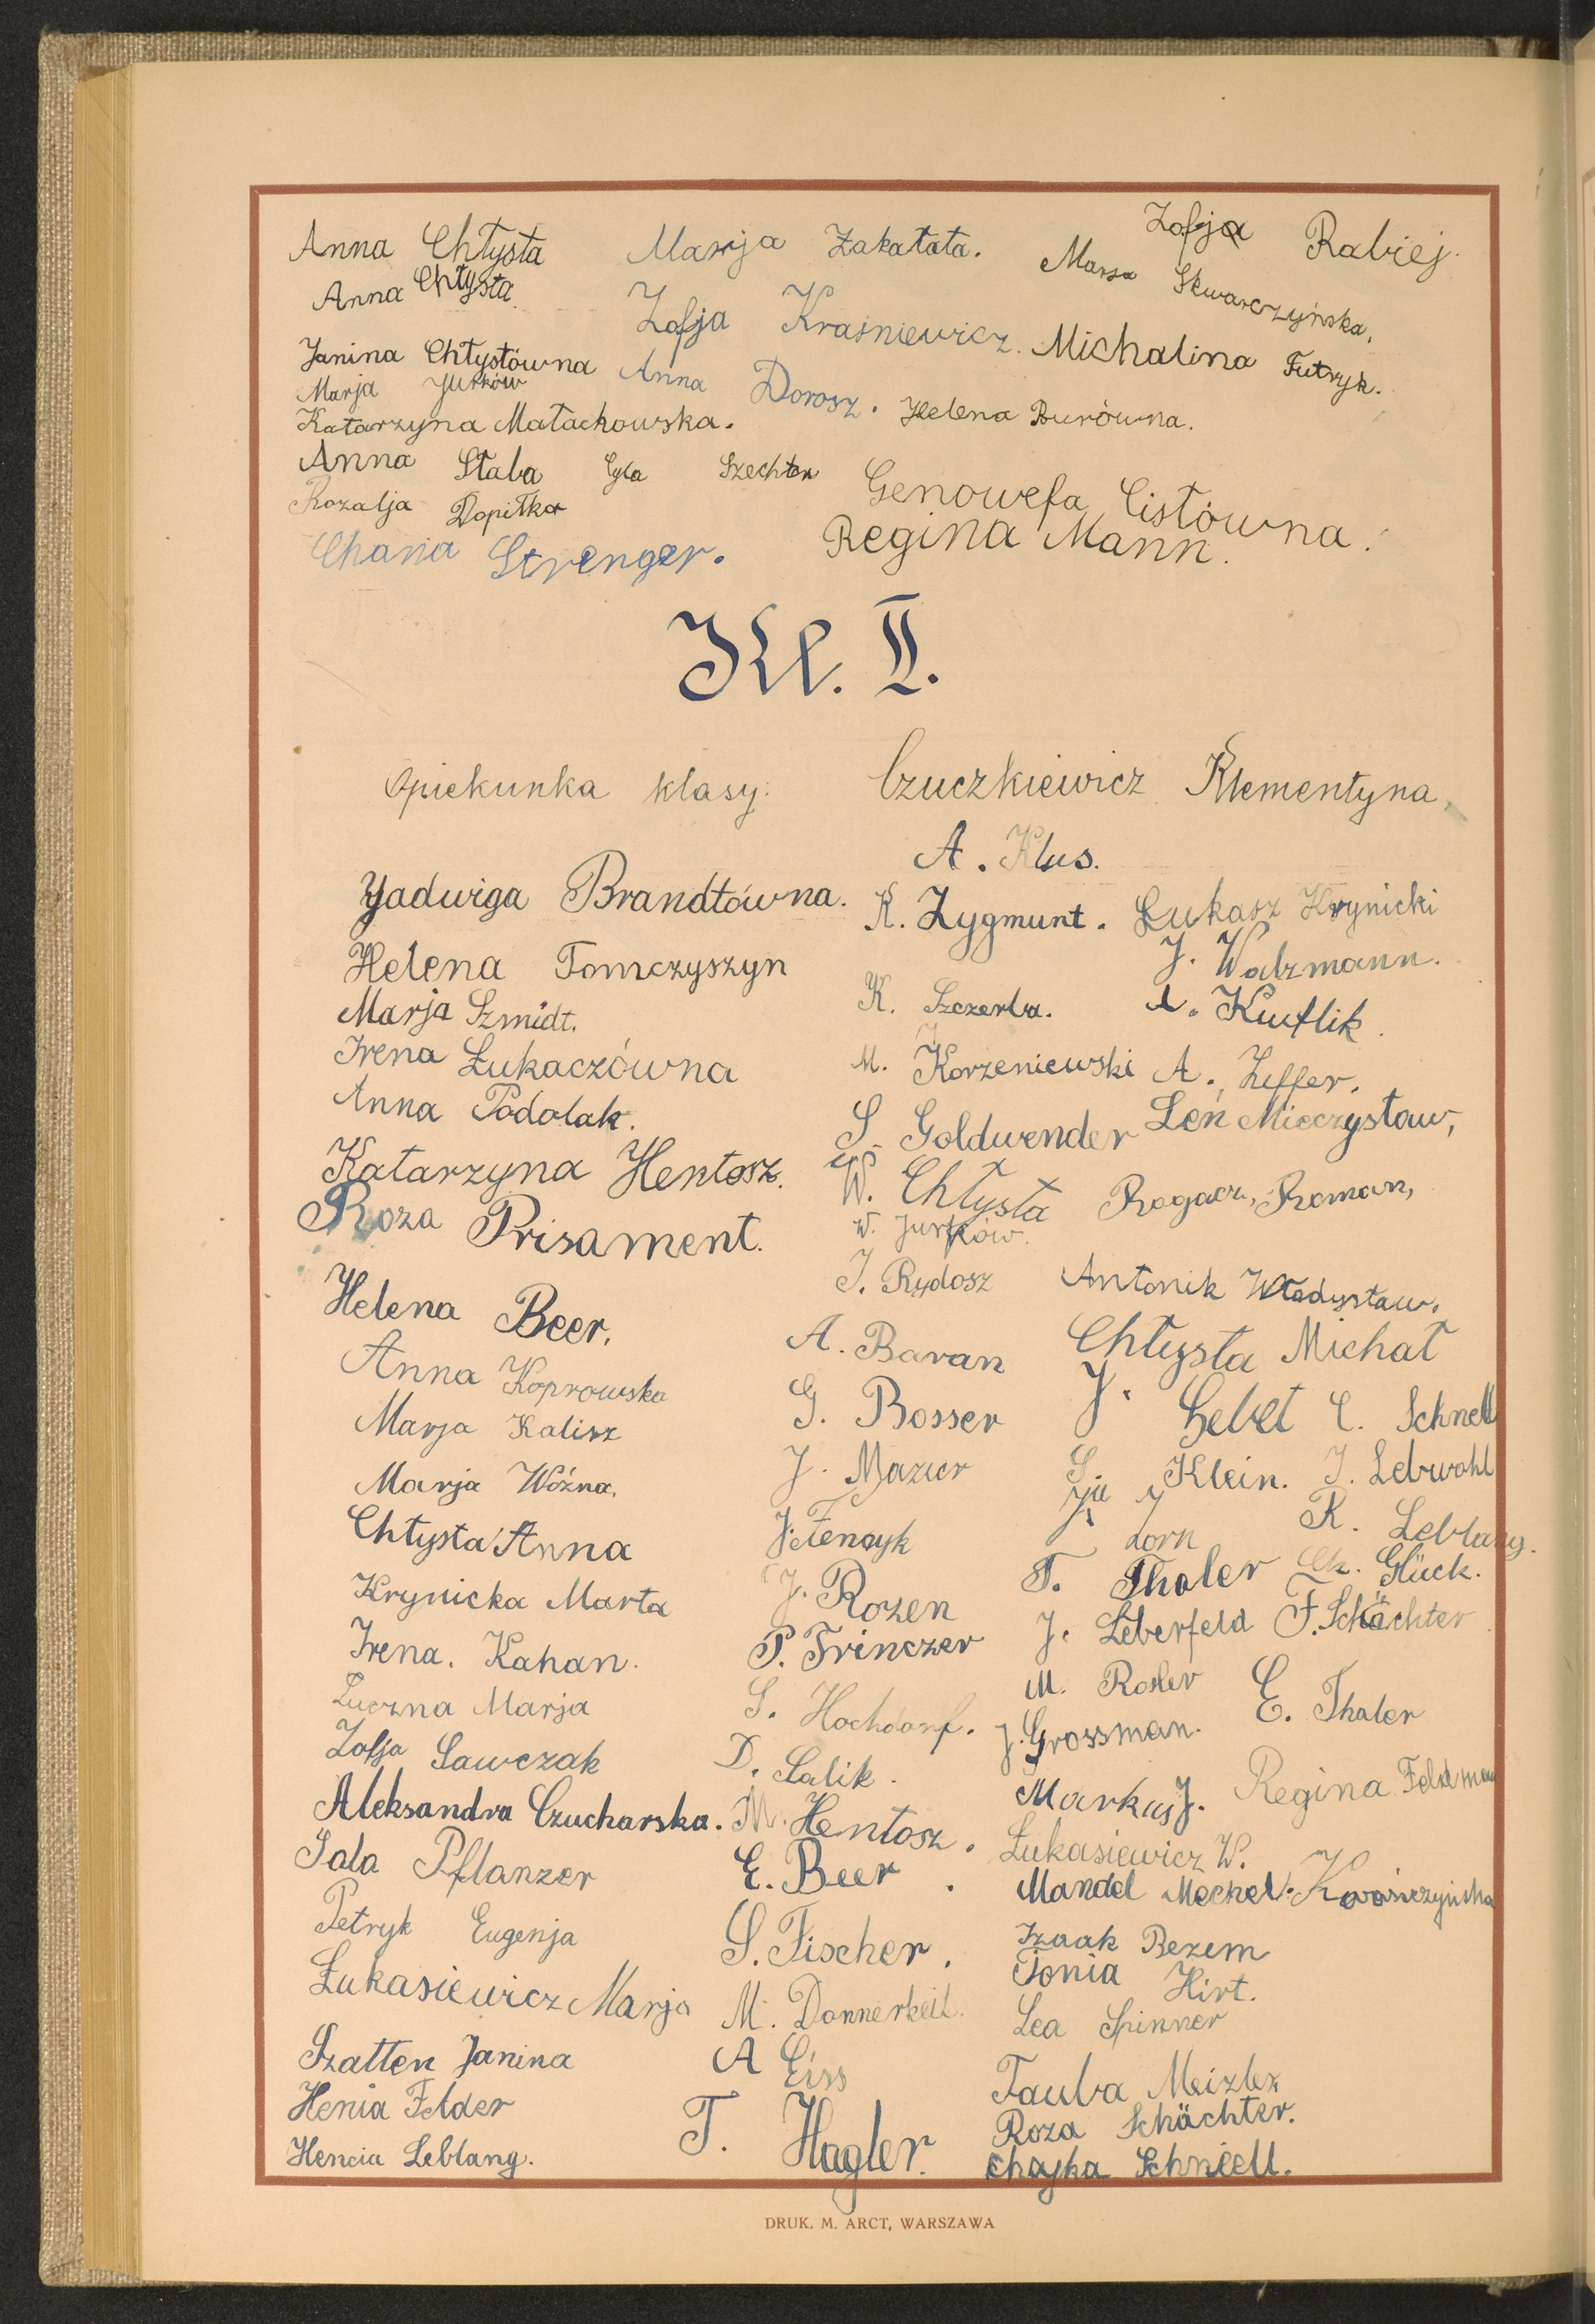 Anna Chłysta Marja Zakałata. Zofja Rabiej.
Anna Chłysta Marja Skwarczyńska,
Zofja Kraśniewicz. Michalina Futryk.
Janina Chłystówna Anna Dorosz. Helena Burówna.
Marja Jurków
Katarzyna Małachowska.
Anna Słaba Cyla Szechter Genowefa Cistówna.
Rozalja Dopiłka Regina Mann.
Chana Strenger.
Kl. II.
Opiekunka klasy: Czuczkiewicz Klementyna,
A. Klus.
Jadwiga Brandtówna. K. Zygmunt. Łukasz Hrynicki
Helena Tomczyszyn J. Walzmann.
Marja Szmidt. K. Szczerba. A. Kutlik.
Irena Łukaczówna M. Korzeniewski A. Ziffer.
Anna Podolak. S. Goldwender Leń Mieczysław,
Katarzyna Hentosz. W. Chłysta Rogacz, Roman,
Roza Prisament. W. Jurków.
Helena Beer. J. Rydosz Antonik Władysław.
A. Baran Chłysta Michał
Anna Koprowska G. Bosser J. Gebet C. Schnell
Marja Kalisz J. Mazur S. Klein. J. Lebwohl
Marja Woźna. J. Fenczyk J. Zorn R. Leblang.
Chłysta Anna J. Rozen T. Thaler Ch. Glück.
Krynicka Marta P. Trinczer J. Leberfeld F. Schächter
Irena. Kahan. S. Hochdorf. M. Rosler E. Thaler
Luczna Marja J. Grossman.
Zofja Sawczak D. Salik. Markus J. Regina Feldman
Aleksandra Czucharska. M. Hentosz. Łukasiewicz W.
Sala Pflanzer E. Beer. Mandel Mechel.
Petryk Eugenja S. Fischer. Izaak Bezem
Łukasiewicz Marja M. Donnerkeil. Tonia Hirt.
Lea Spinner
Szatten Janina A Eiss Tauba Meizler
Henia Felder T. Hagler. Roza Schächter.
Hencia Leblang. Chajka Schniell.
DRUK. M. ARCT, WARSZAWA